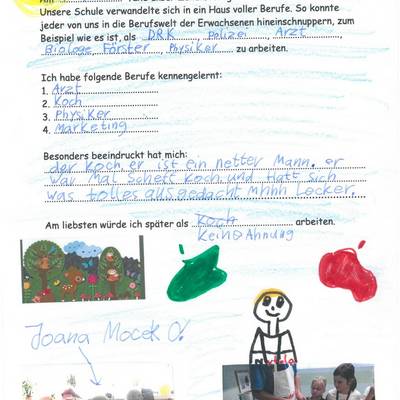 Unsere Schule verwandelte sich in ein Haus voller Berufe. So konnte
jeder von uns in die Berufswelt der Erwachsenen hineinschnuppern, zum
Beispiel wie es ist, als DRK, Polizei, Arzt,
Biologe, Förster, Physiker zu arbeiten.
Ich habe folgende Berufe kennengelernt:
1. Arzt
2. Koch
3. Physiker
4. Marketing
Besonders beeindruckt hat mich:
der Koch, er ist ein netter Mann. er
war mal Scheff Koch und Hatt sich
was tolles ausgedacht mhhh Lecker.
Am liebsten würde ich später als Koch arbeiten.
Keine Ahnung
Joana Mocek